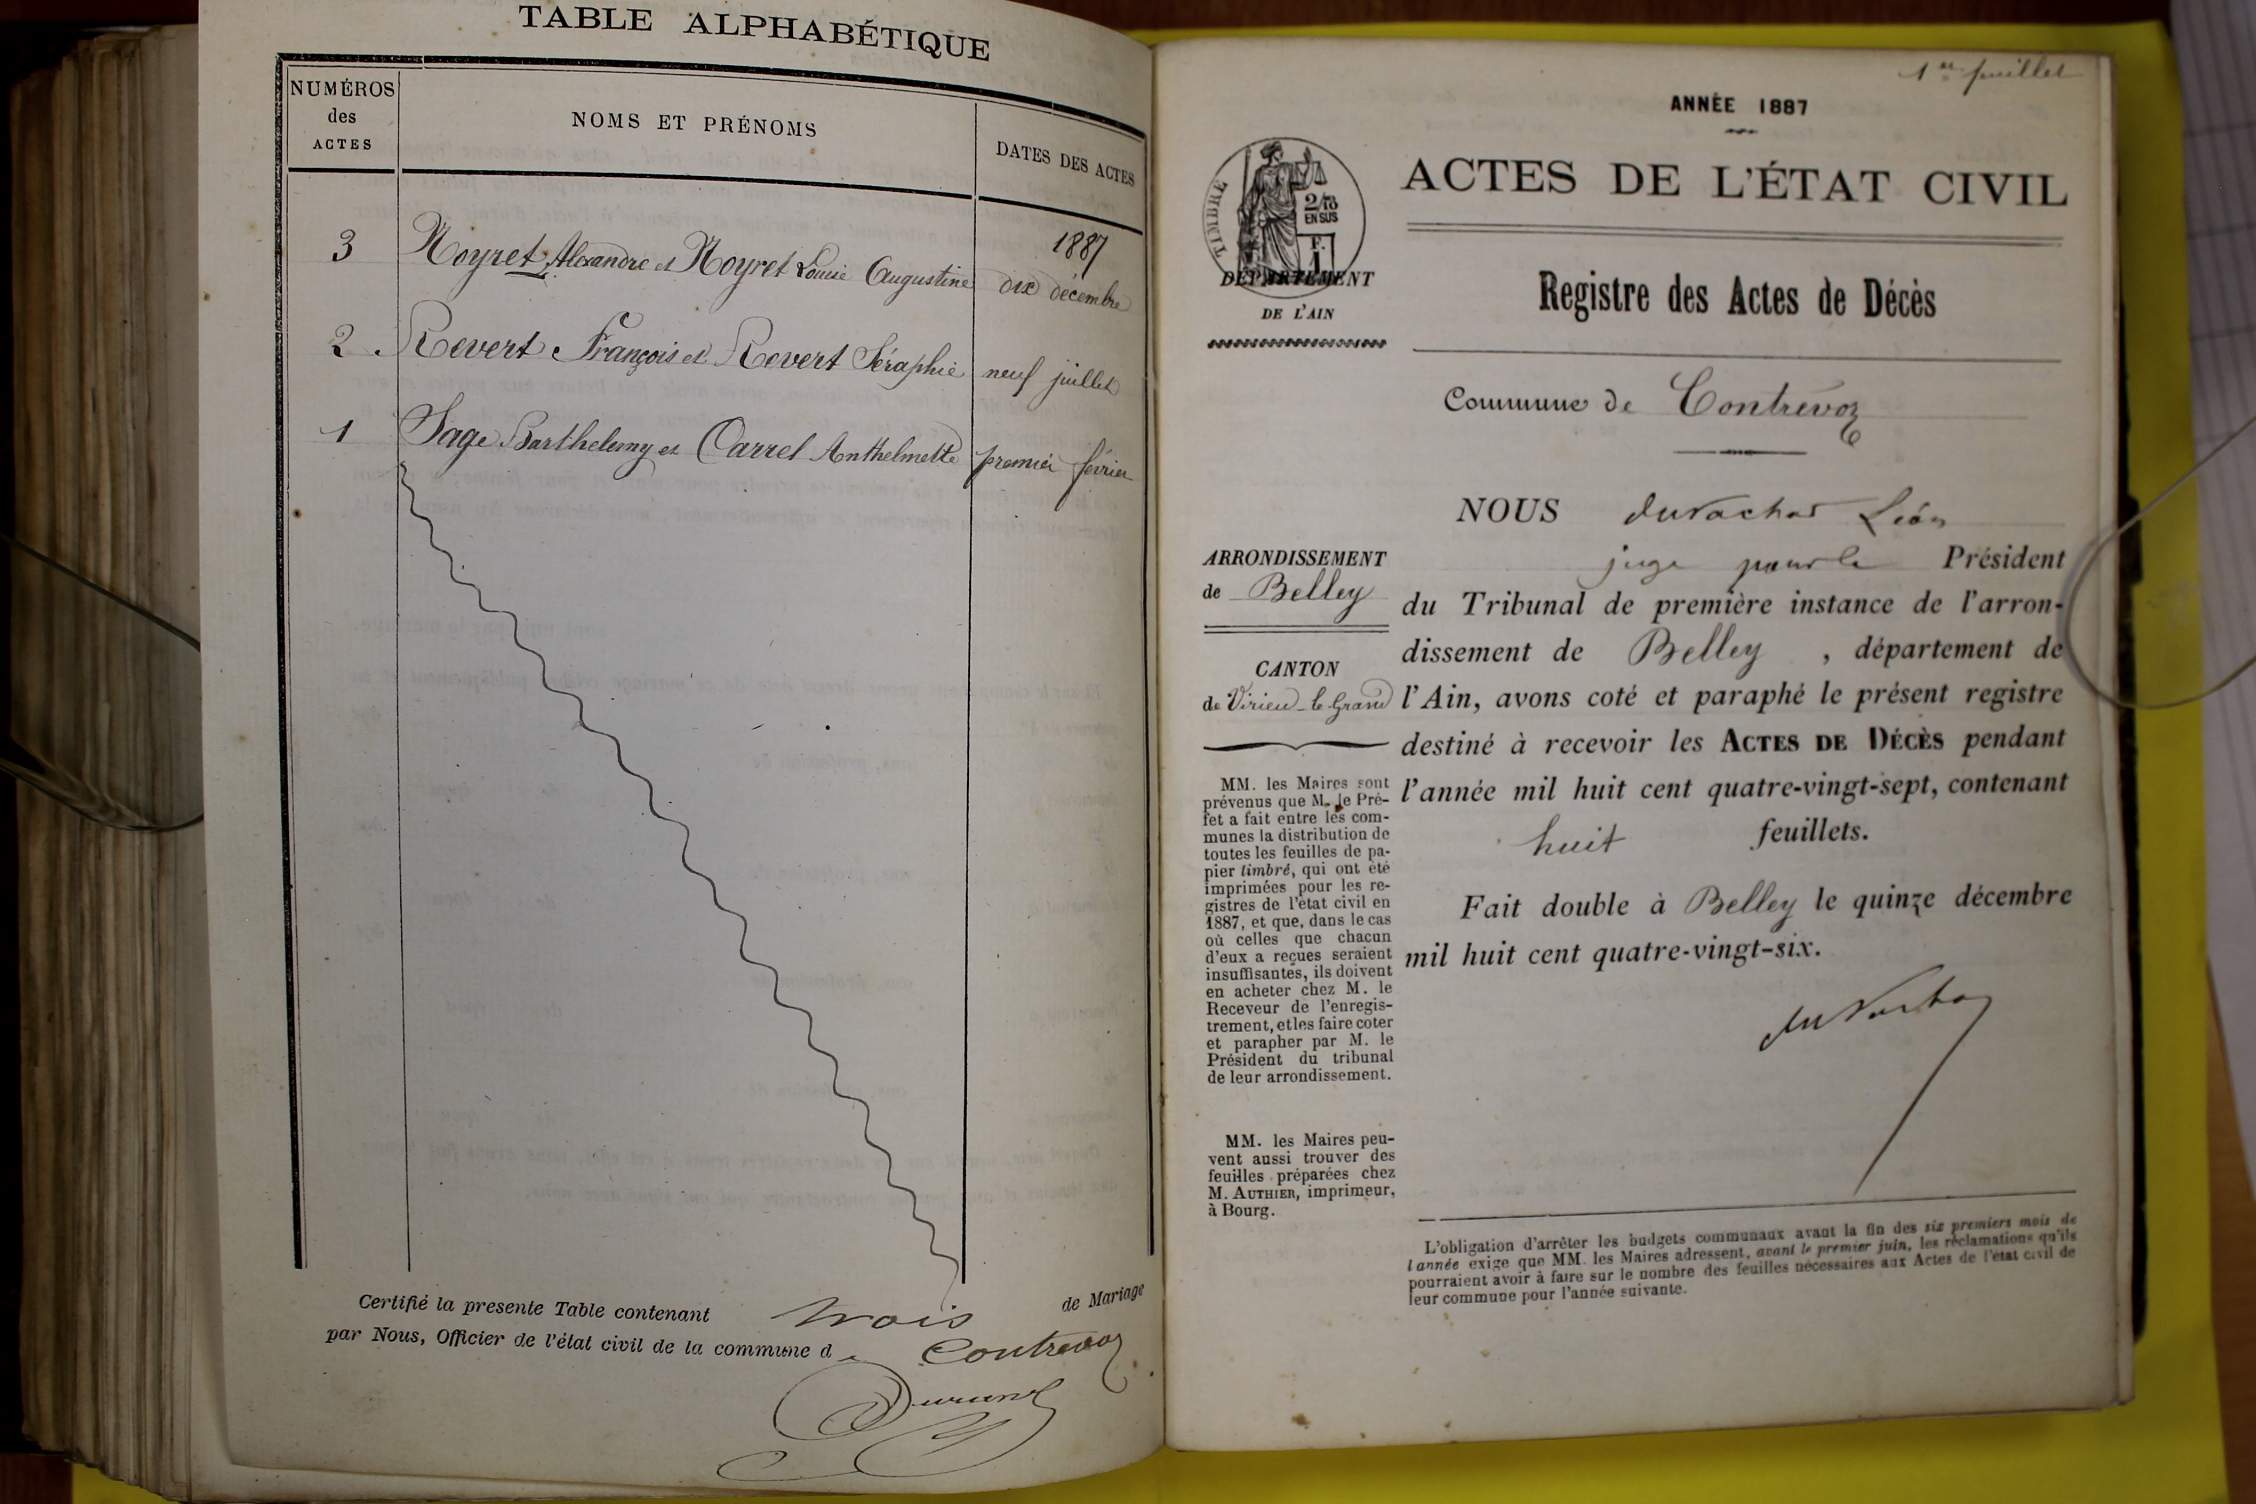 TABLE ALPHABÉTIQUE
NUMÉROS
des
ACTES
NOMS ET PRÉNOMS
DATES DES ACTES
1887
3 Noyret Alexandre et Noyret Louise Augustine dix décembre
2 Revert François et Revert Séraphie neuf juillet
1 Sage Barthelemy et Carrel Anthelmette premier février
Certifié la presente Table contenant trois de Mariage
par Nous, Officier de l'état civil de la commune de Contrevoz
Durand
1er feuillet
ANNÉE 1887
ACTES DE L'ÉTAT CIVIL
TIMBRE
2/10
EN SUS
F.
1
DÉPARTEMENT
DE L'AIN
Registre des Actes de Décès
Commune de Contrevoz
NOUS Léon
juge pour le Président
ARRONDISSEMENT
de Belley
du Tribunal de première instance de l'arron-
dissement de Belley, département de
CANTON
de Virieu-le-Grand
l'Ain, avons coté et paraphé le présent registre
destiné à recevoir les ACTES DE DÉCÈS pendant
l'année mil huit cent quatre-vingt-sept, contenant
huit feuillets.
Fait double à Belley le quinze décembre
mil huit cent quatre-vingt-six.
MM. les Maires sont
prévenus que M. le Pré-
fet a fait entre les com-
munes la distribution de
toutes les feuilles de pa-
pier timbré, qui ont été
imprimées pour les re-
gistres de l'état civil en
1887, et que, dans le cas
où celles que chacun
d'eux a reçues seraient
insuffisantes, ils doivent
en acheter chez M. le
Receveur de l'enregis-
trement, et les faire coter
et parapher par M. le
Président du tribunal
de leur arrondissement.
MM. les Maires peu-
vent aussi trouver des
feuilles préparées chez
M. AUTHIER, imprimeur,
à Bourg.
L'obligation d'arrêter les budgets communaux avant la fin des six premiers mois de
l'année exige que MM. les Maires adressent, avant le premier juin, les réclamations qu'ils
pourraient avoir à faire sur le nombre des feuilles nécessaires aux Actes de l'état civil de
leur commune pour l'année suivante.